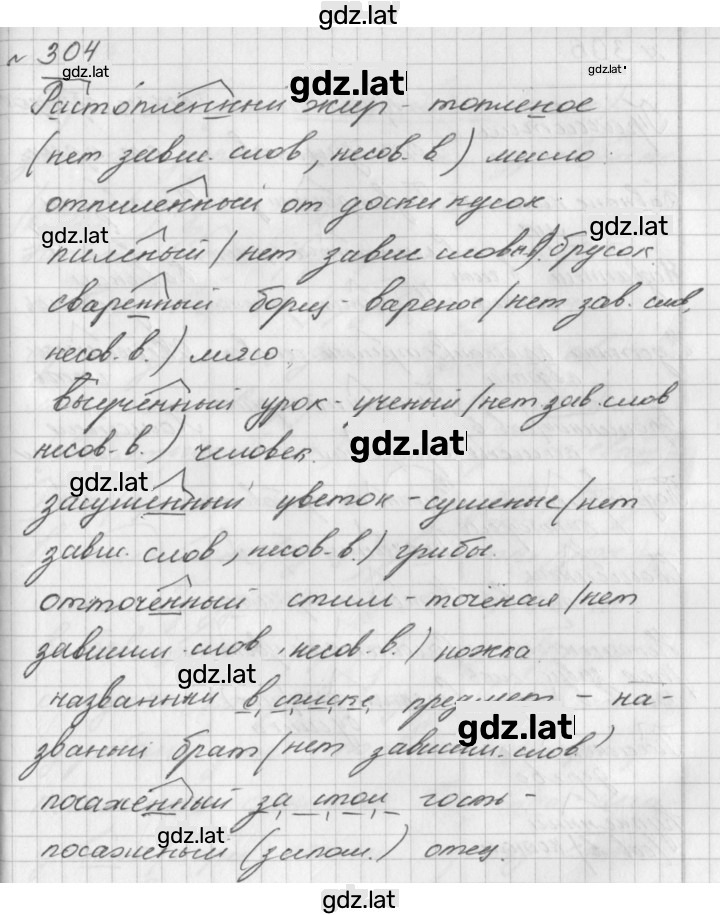 gdz.lat
№ 304
gdz.lat gdz.lat gdz.lat
Растопленный жир - топленое
(нет завис. слов, несов. в.) масло.
отпиленный от доски кусок
gdz.lat gdz.lat
пиленый (нет завис слов) брусок
сваренный борщ - вареное (нет зав. слов,
несов. в.) мясо.
выученный урок - ученый (нет зав. слов
несов. в.) человек. gdz.lat
gdz.lat
засушенный цветок - сушеные (нет
завис. слов, несов. в.) грибы.
отточенный стиль - точёная (нет
зависим. слов, несов. в.) ножка
gdz.lat
названный в списке предмет - на-
gdz.lat
званный брат (нет зависим. слов)
посаженный за стол гость -
gdz.lat
посаженый (запом.) отец.
gdz.lat